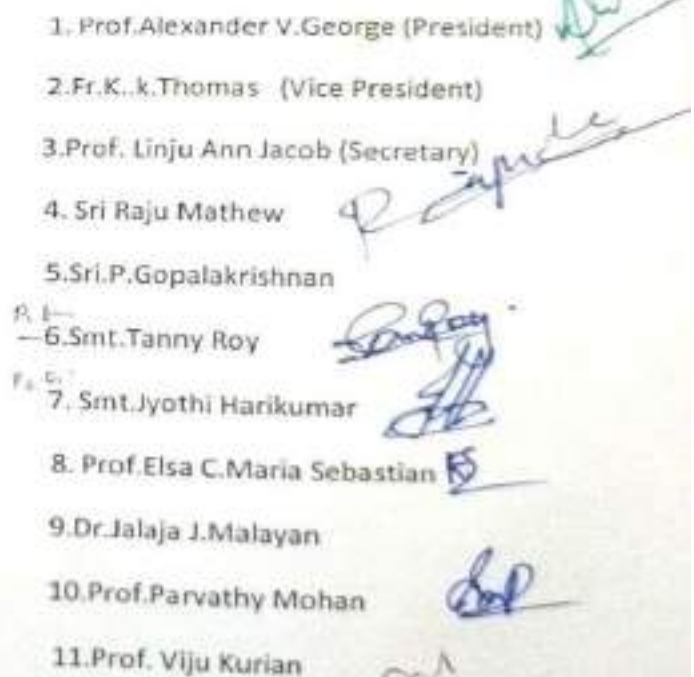 1. Prof.Alexander V.George (President)
2.Fr.K..k.Thomas (Vice President)
3.Prof. Linju Ann Jacob (Secretary)
4. Sri Raju Mathew
5.Sri.P.Gopalakrishnan
6.Smt.Tanny Roy
7. Smt.Jyothi Harikumar
8. Prof.Elsa C.Maria Sebastian
9.Dr.Jalaja J.Malayan
10.Prof.Parvathy Mohan
11.Prof. Viju Kurian